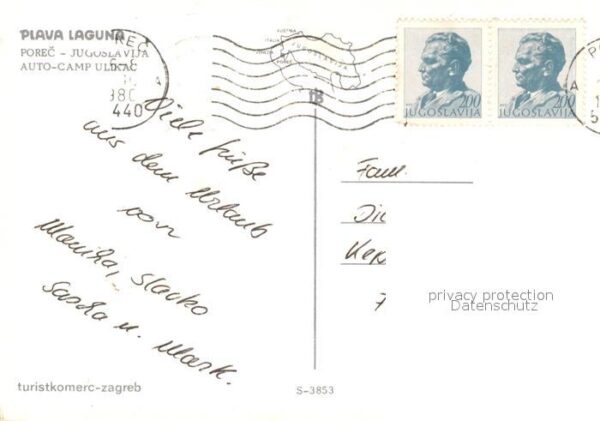 PLAVA LAGUNA
POREČ – JUGOSLAVIJA
AUTO-CAMP ULIKAC
REČ
A
980
440
ISTRIA
ITALIJA
JUGOSLAVIJA
POREČ
TB
2.00
JUGOSLAVIJA
2.00
JUGOSLAVIJA
PO
A
1
5
Viele Grüße
aus dem Urlaub
von
Marika, Slavko
Sascha u. Mark.
Fam.
Di
Ke
7
privacy protection
Datenschutz
turistkomerc-zagreb
S-3853